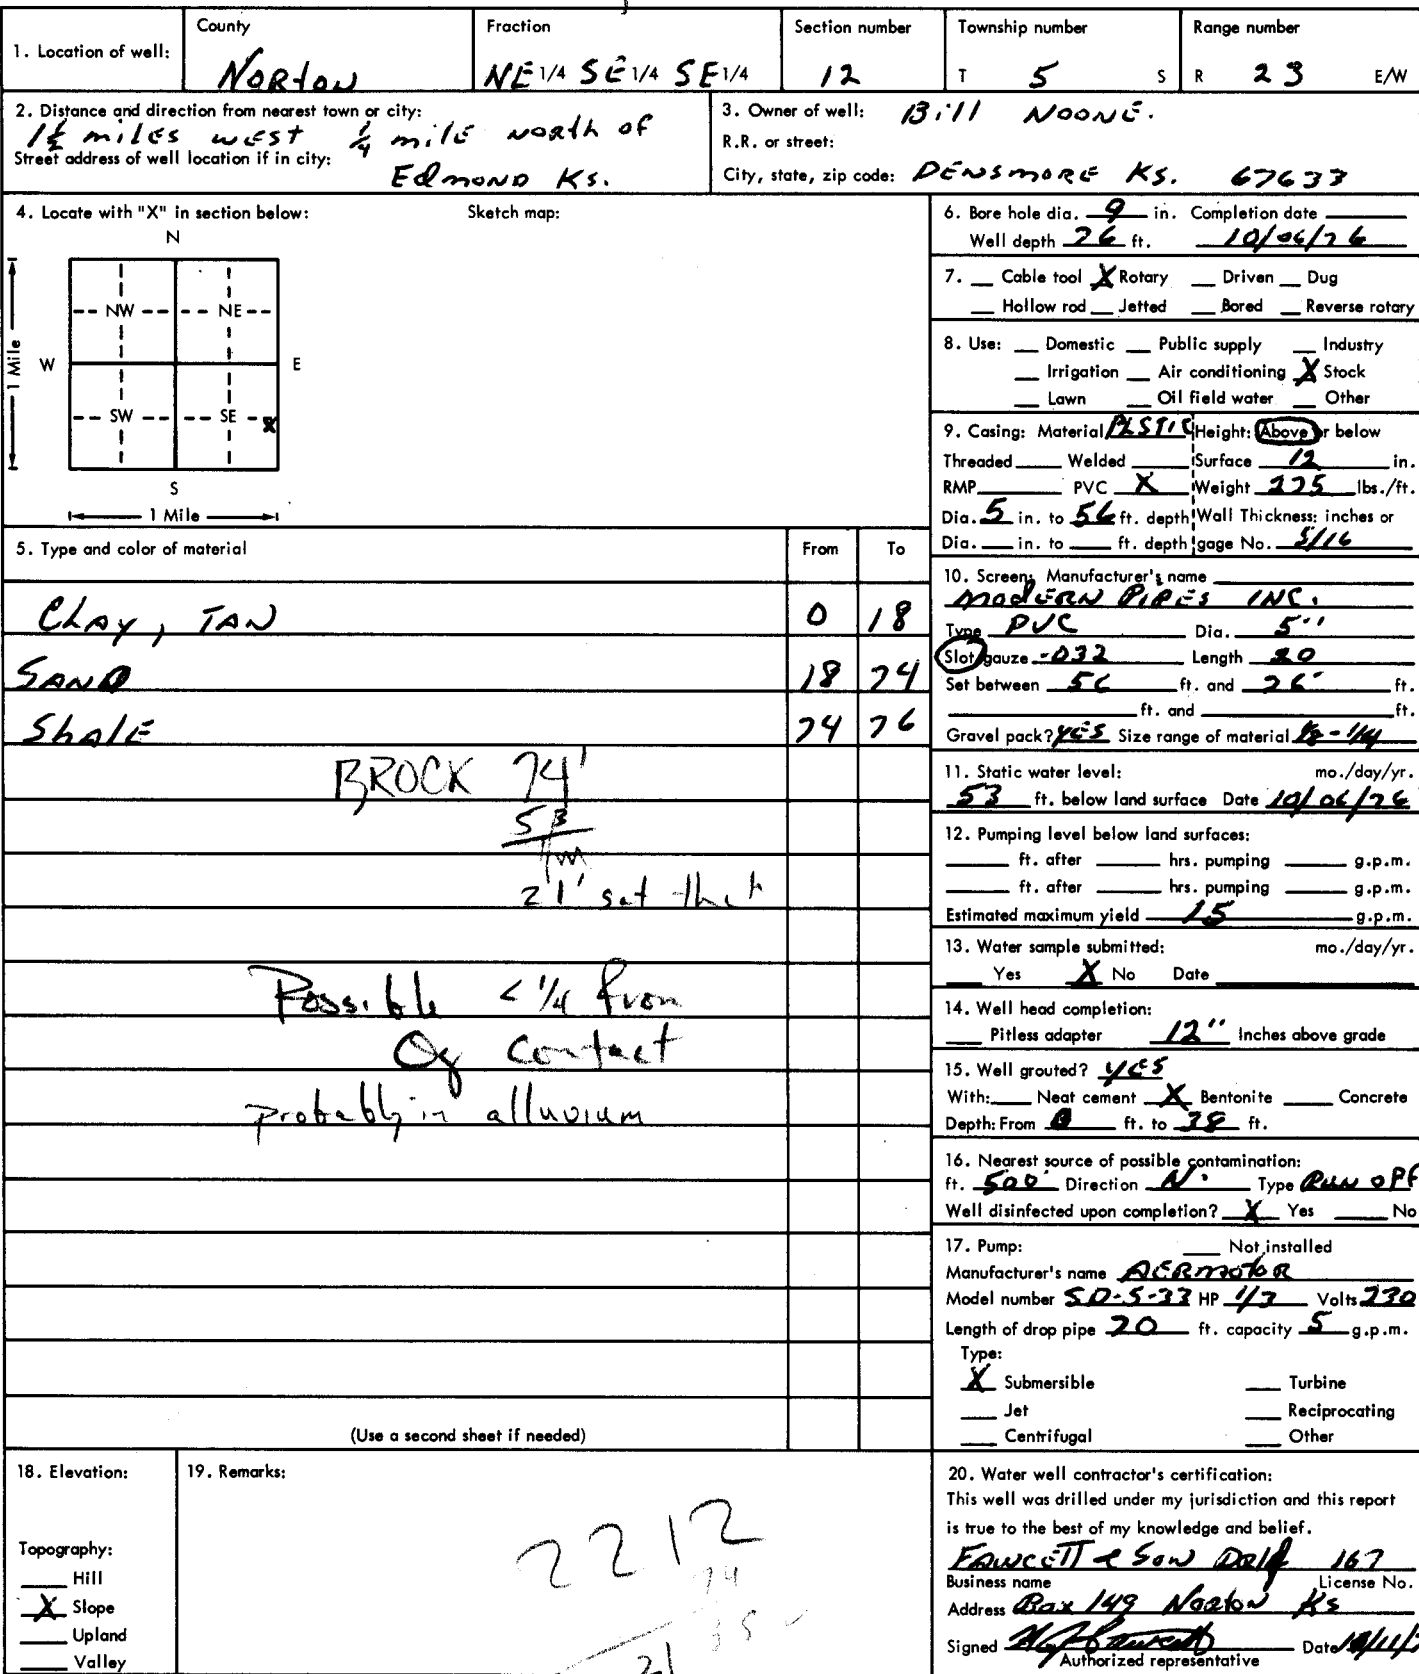 County
Fraction
Section number
Township number
Range number
1. Location of well:
Norton
NE 1/4 SE 1/4 SE 1/4
12
T 5 S
R 23 E/W
2. Distance and direction from nearest town or city:
1½ miles west ¼ mile north of
Street address of well location if in city:
Edmond Ks.
3. Owner of well: Bill Noone.
R.R. or street:
City, state, zip code: Densmore Ks. 67633
4. Locate with "X" in section below:
Sketch map:
N
NW NE
W E
1 Mile
SW SE X
S
1 Mile
5. Type and color of material From To
Clay, Tan 0 18
Sand 18 74
Shale 74 76
BROCK 74'
53
21' sat
Possible < 1/4 from
Og contact
probably in alluvium
(Use a second sheet if needed)
6. Bore hole dia. 9 in. Completion date
Well depth 76 ft. 10/06/76
7. __ Cable tool X Rotary __ Driven __ Dug
__ Hollow rod __ Jetted __ Bored __ Reverse rotary
8. Use: __ Domestic __ Public supply __ Industry
__ Irrigation __ Air conditioning X Stock
__ Lawn __ Oil field water __ Other
9. Casing: Material PLSTIC Height: Above or below
Threaded __ Welded __ Surface 12 in.
RMP __ PVC X Weight 225 lbs./ft.
Dia. 5 in. to 56 ft. depth Wall Thickness: inches or
Dia. __ in. to __ ft. depth gage No. 5/16
10. Screen: Manufacturer's name
Modern Pipes Inc.
Type PVC Dia. 5''
Slot gauze -032 Length 20
Set between 56 ft. and 76' ft.
__ ft. and __ ft.
Gravel pack? Yes Size range of material 1/8 - 1/4
11. Static water level: mo./day/yr.
53 ft. below land surface Date 10/06/76
12. Pumping level below land surfaces:
__ ft. after __ hrs. pumping __ g.p.m.
__ ft. after __ hrs. pumping __ g.p.m.
Estimated maximum yield 15 g.p.m.
13. Water sample submitted: mo./day/yr.
__ Yes X No Date
14. Well head completion:
__ Pitless adapter 12'' Inches above grade
15. Well grouted? Yes
With: __ Neat cement X Bentonite __ Concrete
Depth: From 0 ft. to 38 ft.
16. Nearest source of possible contamination:
ft. 500' Direction N. Type Run off
Well disinfected upon completion? X Yes __ No
17. Pump: __ Not installed
Manufacturer's name Aermotor
Model number SD-5-33 HP 1/3 Volts 230
Length of drop pipe 70 ft. capacity 5 g.p.m.
Type:
X Submersible __ Turbine
__ Jet __ Reciprocating
__ Centrifugal __ Other
18. Elevation:
Topography:
__ Hill
X Slope
__ Upland
__ Valley
19. Remarks:
2212
74
20. Water well contractor's certification:
This well was drilled under my jurisdiction and this report
is true to the best of my knowledge and belief.
Fawcett & Son Drlg 167
Business name License No.
Address Box 149 Norton Ks
Signed Date
Authorized representative